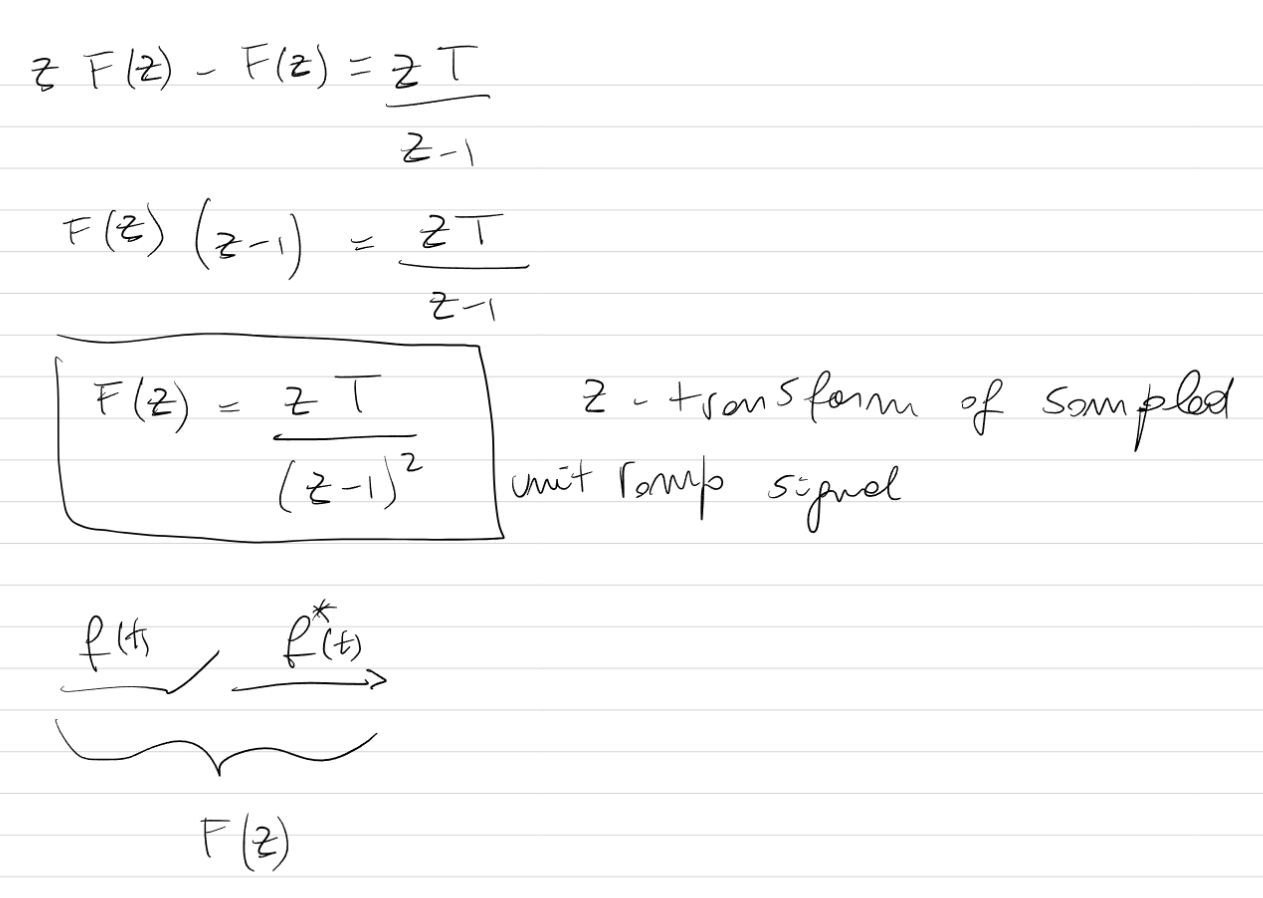 z F(z) - F(z) = zT / (z-1)
F(z) (z-1) = zT / (z-1)
F(z) = zT / (z-1)^2 z - transform of sampled
unit ramp signal
f(t) f*(t)
F(z)